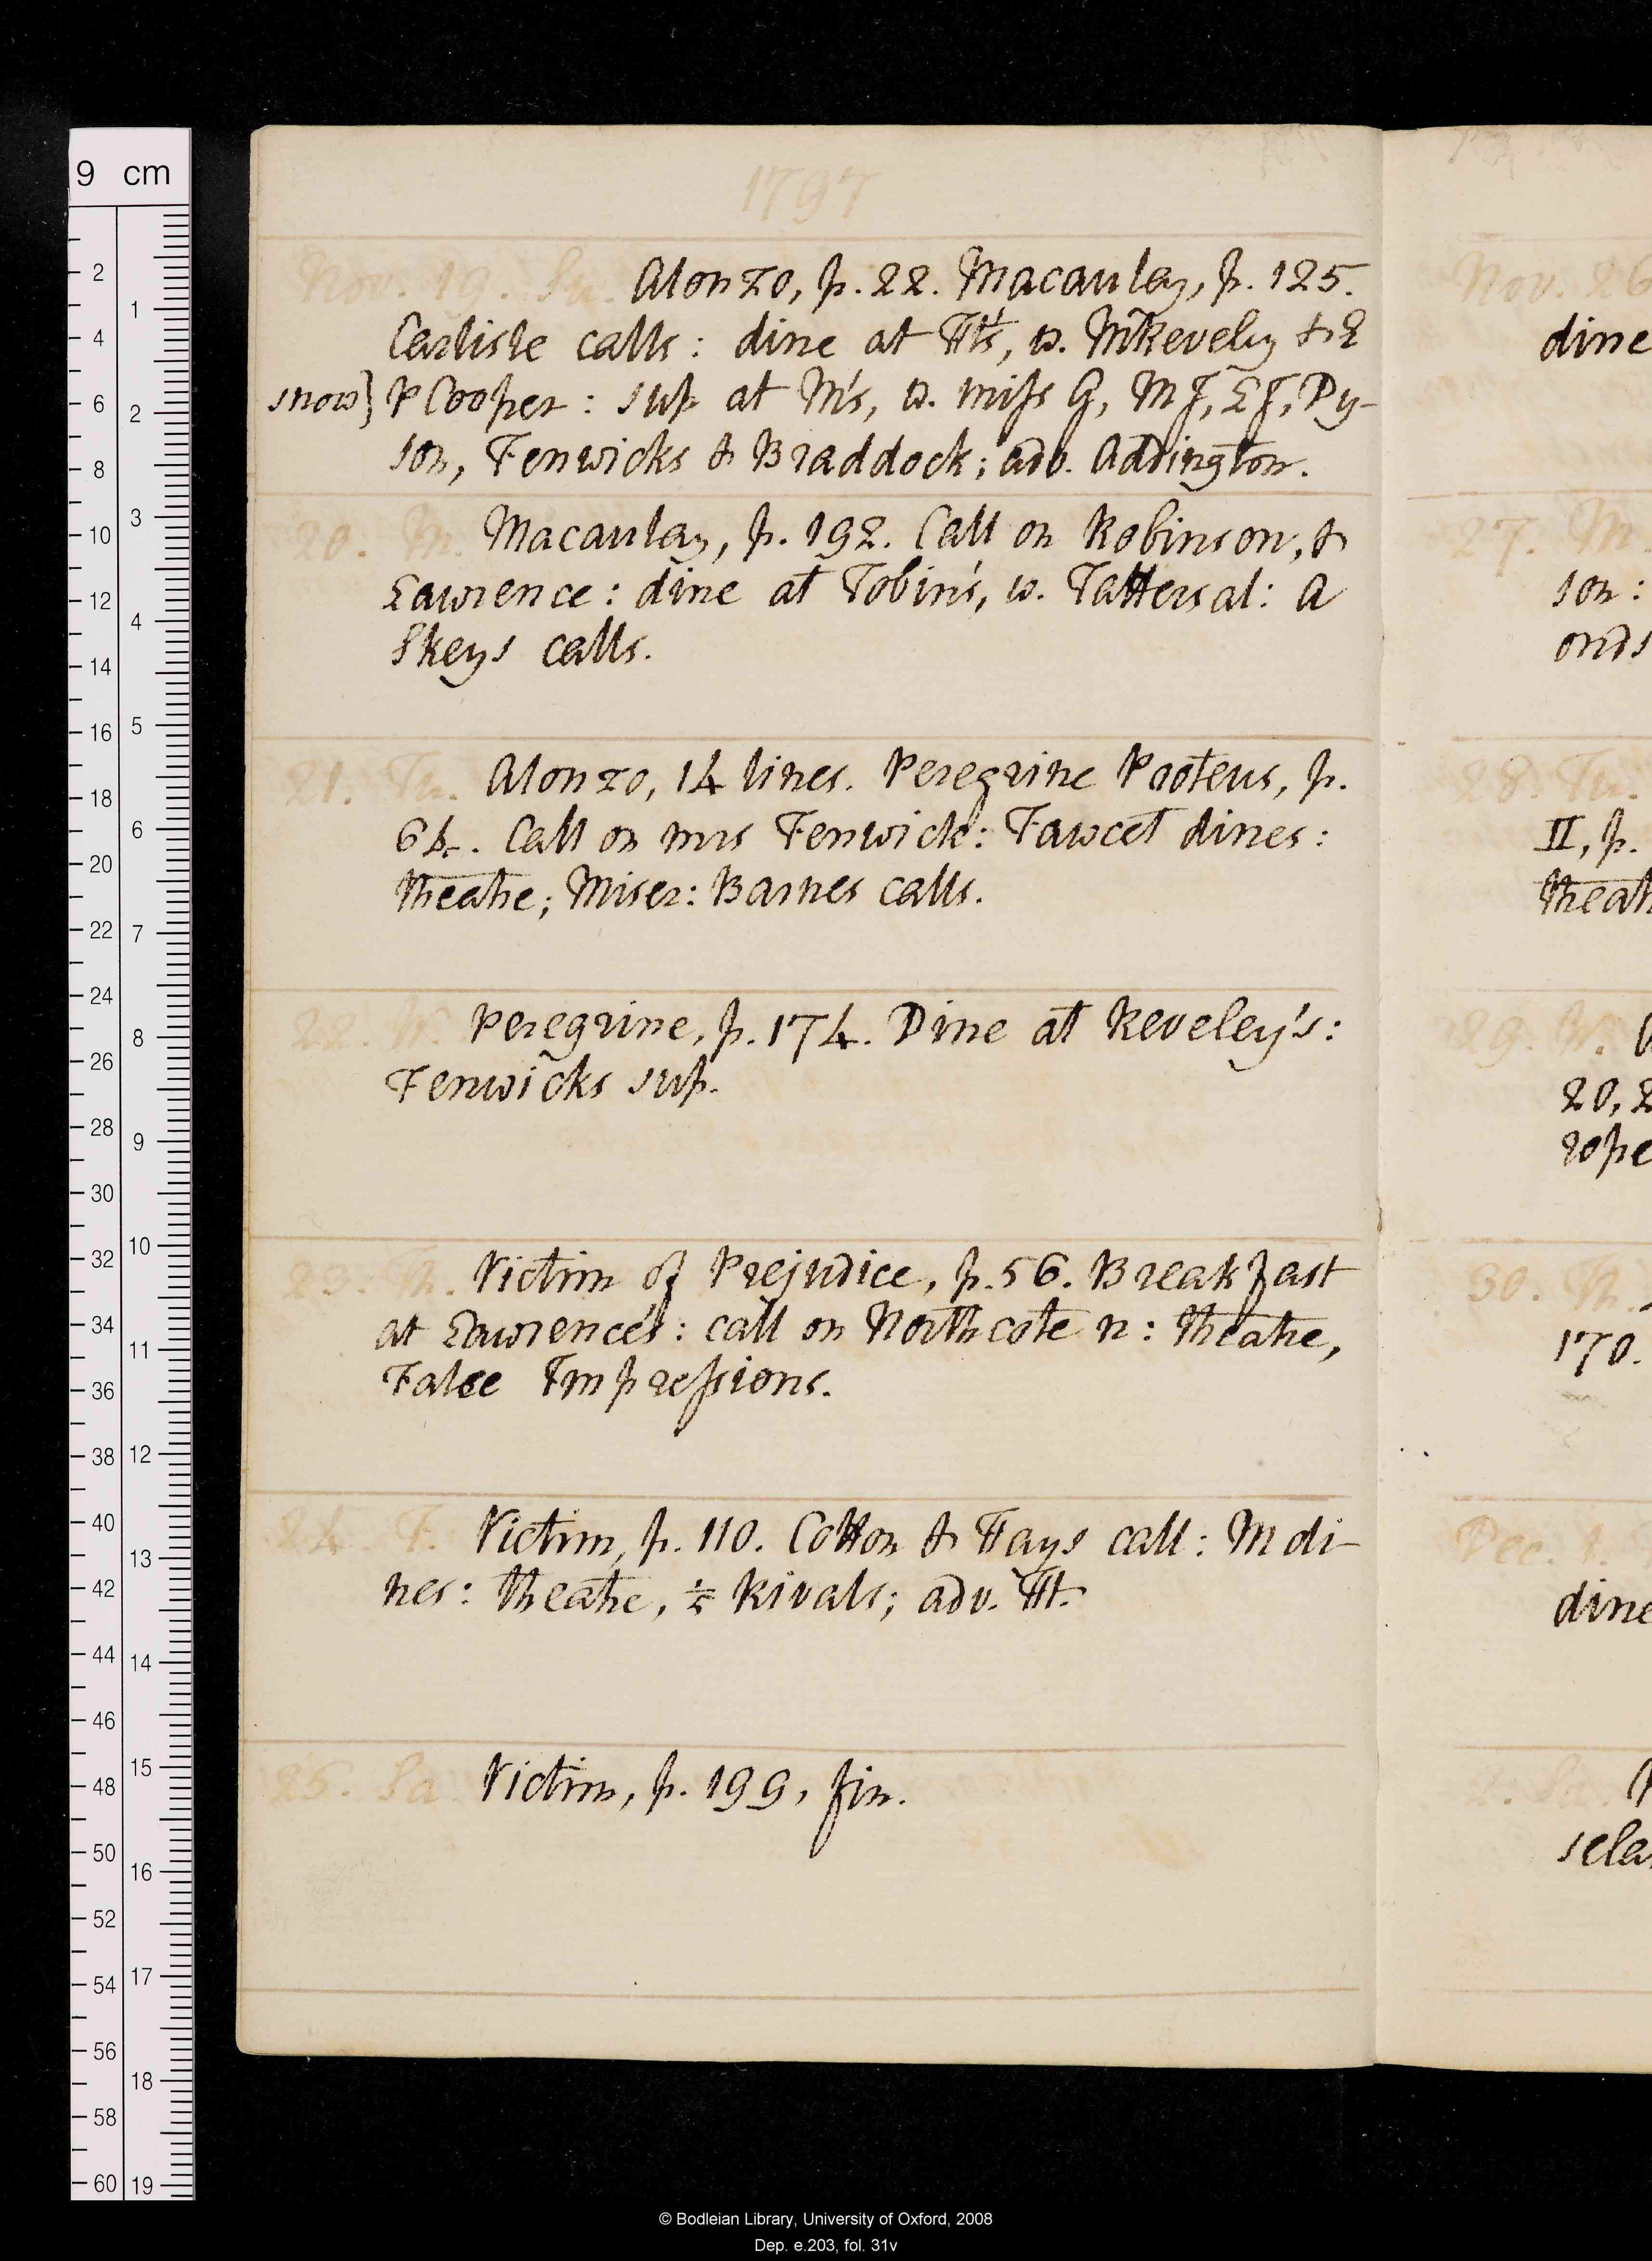 9 cm
1797
Nov. 19. Su. Alonzo, p. 22. Macaulay, p. 125.
Carlisle calls: dine at Ht's, w. M Reveley & E
snow} P Cooper: sup at M's, w. miss G, MJ, LJ, Dy-
son, Fenwicks & Braddock; adv. Addington.
20. M. Macaulay, p. 192. Call on Robinson, &
Lawrence: dine at Tobin's, w. Tattersal: A
Skeys calls.
21. Tu. Alonzo, 14 lines. Peregrine Proteus, p.
64. Call on mrs Fenwick: Fawcet dines:
theatre; Miser: Barnes calls.
22. W. Peregrine, p. 174. Dine at Reveley's:
Fenwicks sup.
23. Th. Victim of Prejudice, p. 56. Breakfast
at Lawrence's: call on Northcote n: theatre,
False Impressions.
24. F. Victim, p. 110. Cotton & Hays call: M di-
nes: theatre, ½ Rivals; adv. Ht.
25. Sa Victim, p. 199, fin.
Nov. 26
dine
27. M
son:
onds
28. Tu.
II, p.
theat
29. W.
20, 2
rope
30. Th.
170.
Dec. 1.
dine
2. Sa.
sela
© Bodleian Library, University of Oxford, 2008
Dep. e.203, fol. 31v